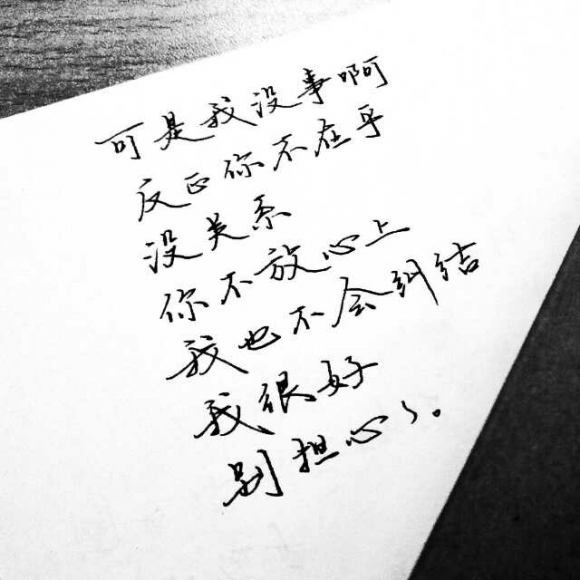 可是我没事啊
反正你不在乎
没关系
你不放心上
我也不会纠结
我很好
别担心、。